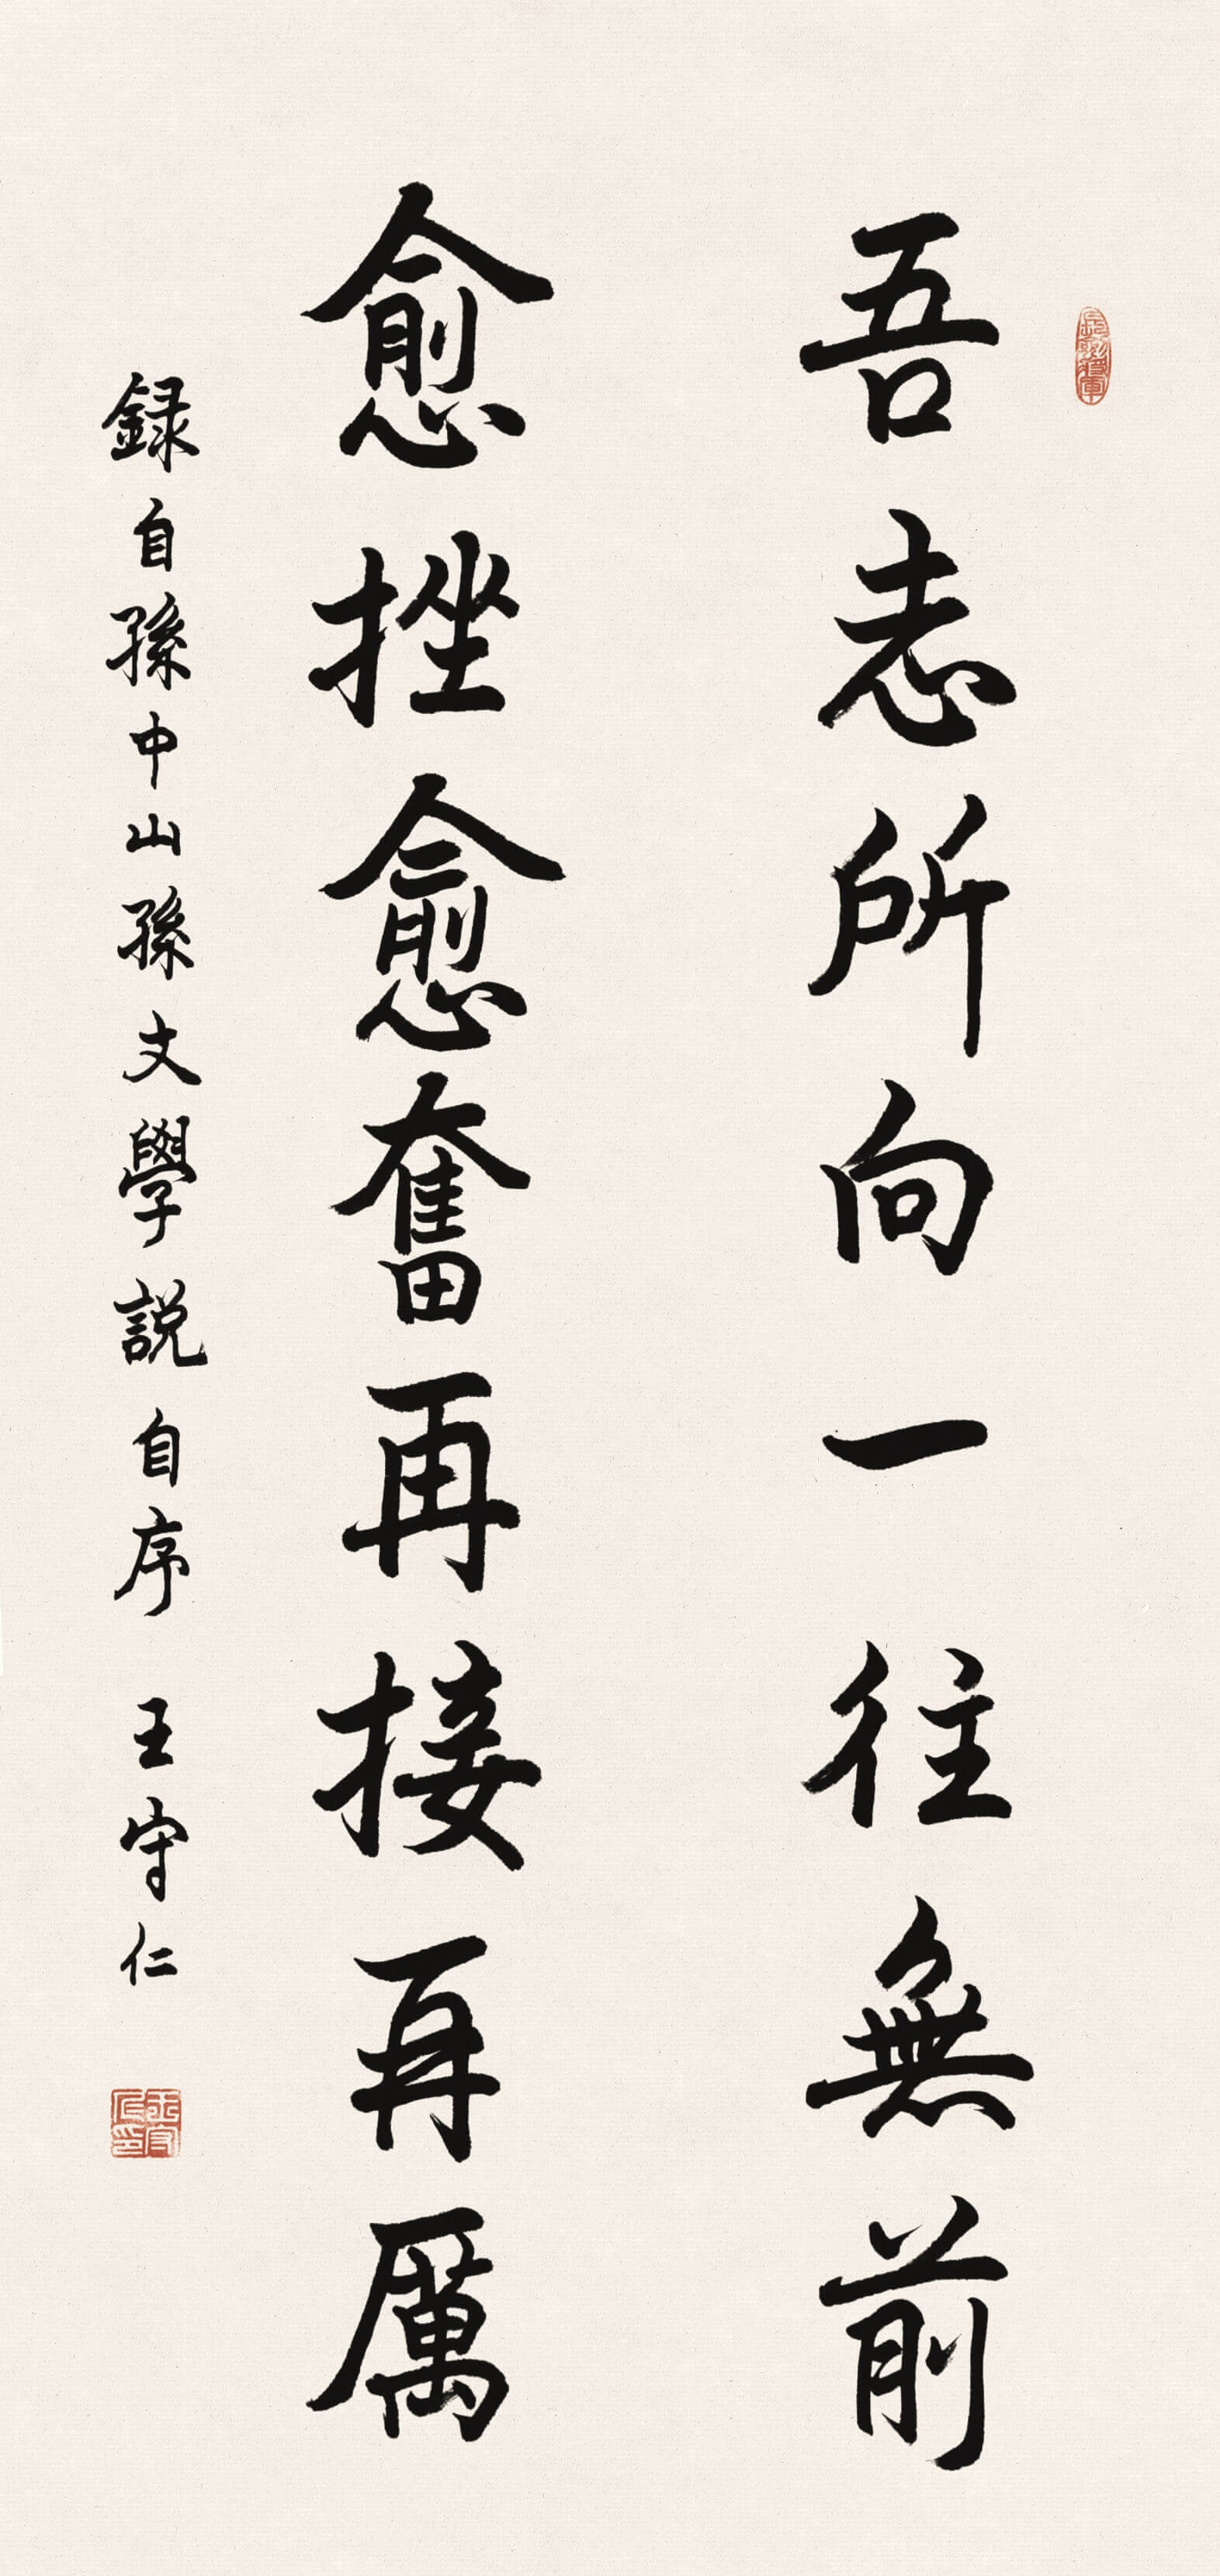 吾志所向一往無前
愈挫愈奮再接再厲
録自孫中山孫文學説自序 王守仁